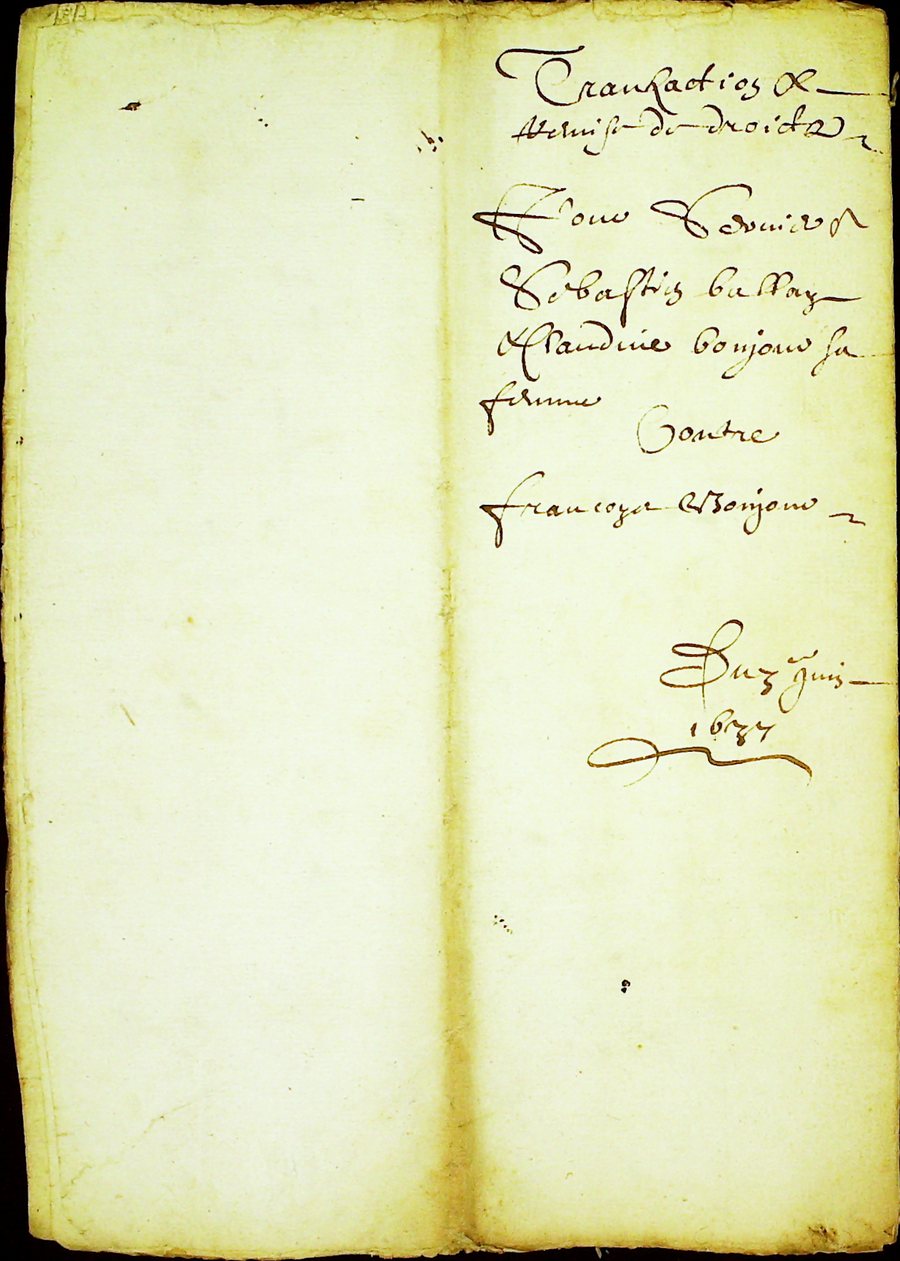 Transaction &
remise de droicts
Pour
Sebastien ballay
& Claudine bonjour sa
femme
Contre
francoyse Bonjour
Du 3me Juin
1637